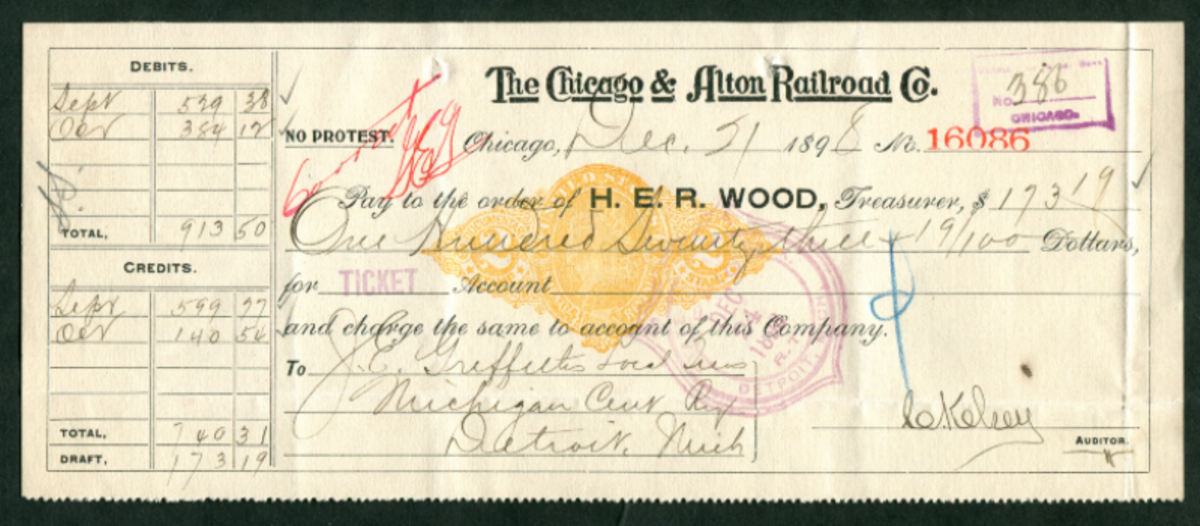 DEBITS.
Sept 529 38
Oct 384 12
TOTAL, 913 50
CREDITS.
Sept 599 77
Oct 140 54
TOTAL, 740 31
DRAFT, 173 19
The Chicago & Alton Railroad Co.
No. 386
CHICAGO.
NO PROTEST. Chicago, Dec. 21 1898 No. 16086
Pay to the order of H. E. R. WOOD, Treasurer, $ 173 19
One Hundred Seventy three & 19/100 Dollars,
for TICKET Account
and charge the same to account of this Company.
To J. E. Griffiths Local Treas
Michigan Cent Ry
Detroit, Mich
DEC 24
DETROIT
C. Kelsey
AUDITOR.